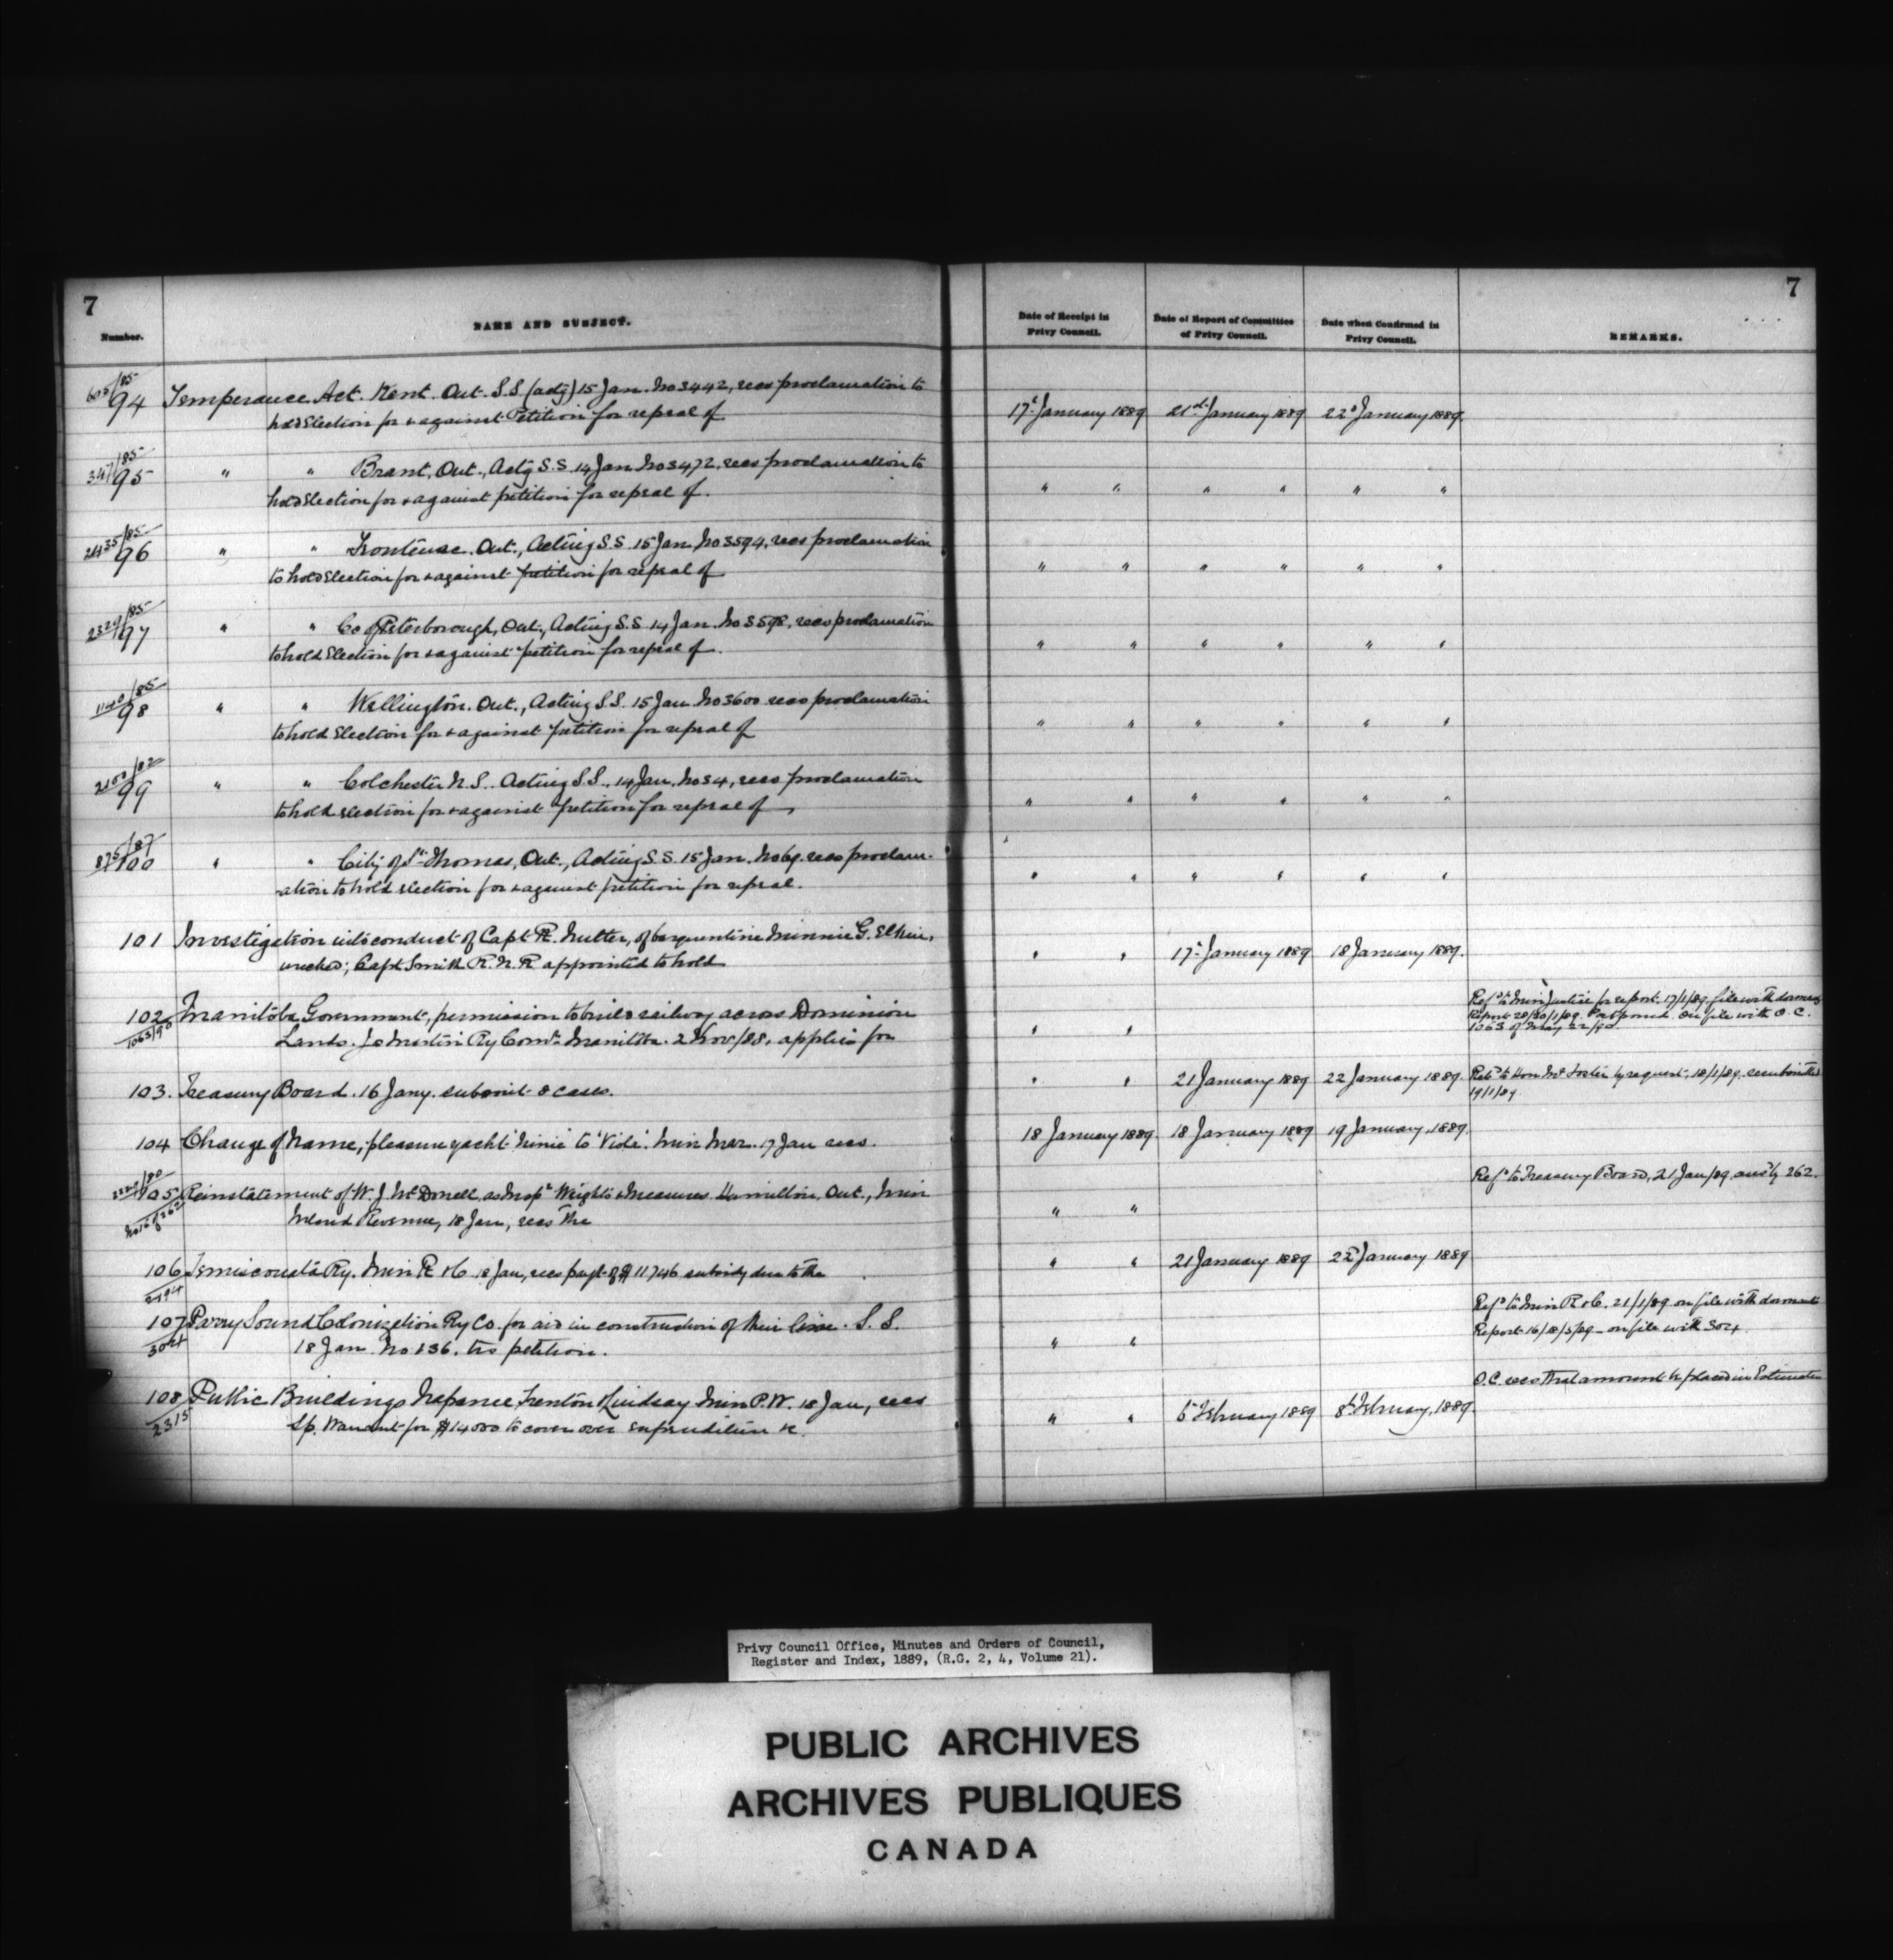 7
7
Number.
NAME AND SUBJECT.
Date of Receipt in
Privy Council.
Date of Report of Committee
of Privy Council.
Date when Confirmed in
Privy Council.
REMARKS.
605/85
94 Temperance Act. Kent. Ont. S.S (actg) 15 Jan. No 3442, recs proclamation to
hold Election for & against Petition for repeal of 17th January 1889 21st January 1889 22d January 1889.
347/85
95 " " Brant, Ont., Actg S.S. 14 Jan No 3472, recs proclamation to
hold Election for & against petition for repeal of. " " " " " "
2435/85
96 " " Frontenac. Ont., Acting S.S 15 Jan No 3594, recs proclamation
to hold Election for & against petition for repeal of " " " " " "
2329/85
97 " " Co of Peterborough, Ont., Acting S.S 14 Jan. No 3598, recs proclamation
to hold Election for & against petition for repeal of. " " " " " "
1140/85
98 " " Wellington. Ont., Acting S.S. 15 Jan No 3600 recs proclamation
to hold Election for & against petition for repeal of " " " " " "
2150/82
99 " " Colchester N.S. Acting S.S. 14 Jan. No 34, recs proclamation
to hold election for & against petition for repeal of, " " " " " "
875/87
100 " " City of St Thomas, Ont., Acting S.S. 15 Jan. No 69. recs proclam-
ation to hold election for & against petition for repeal. " " " " " "
101 Investigation into conduct of Capt R. Nutter, of barquentine Minnie G. Elkin,
wrecked; Capt Smith R.N.R appointed to hold " " 17th January 1889 18 January 1889.
102 Manitoba Government, permission to build railway across Dominion
1063/90 Lands. Jos Martin Ry Comr Manitoba. 2 Nov/88, applies for " "
Refd to Min Justice for report. 17/1/89. file with dormant
Report 28/30/1/89. Postponed. On file with O.C.
1063 of May 22/90
103. Treasury Board. 16 Jany. submit 8 cases. " " 21 January 1889 22 January 1889. Retd to Hon Mr Foster by request. 18/1/89. resubmitted
19/1/89
104 Change of Name, pleasure yacht 'Ninie' to 'Viola'. Min Mar. 17 Jan recs. 18 January 1889. 18 January 1889 19 January, 1889.
105 Reinstatement of W. J. McDonell, as Inspr Weights & Measures Hamilton, Ont., Min
No 16 of 262 Inland Revenue, 18 Jan, recs the " "
Refd to Treasury Board, 21 Jan/89, ans'd by 262.
106 Temiscouata Ry. Min R &C 18 Jan, recs payt of $11746 subsidy due to the " " 21 January 1889 22d January 1889
2194
107 Parry Sound Colonization Ry Co. for aid in construction of their line. S.S.
3024 18 Jan. No 136. trs petition. " "
Refd to Min R &C. 21/1/89 on file with dormants
Report 16/18/3/89 - on file with 3024.
108 Public Buildings Napanee, Trenton & Lindsay Min P.W. 18 Jan, recs
2315 Sp. Warrant for $14000 to cover over expenditure &c. " " 6th February 1889 8th February, 1889.
O.C. recs that amount be placed in Estimates
Privy Council Office, Minutes and Orders of Council,
Register and Index, 1889, (R.G. 2, 4, Volume 21).
PUBLIC ARCHIVES
ARCHIVES PUBLIQUES
CANADA